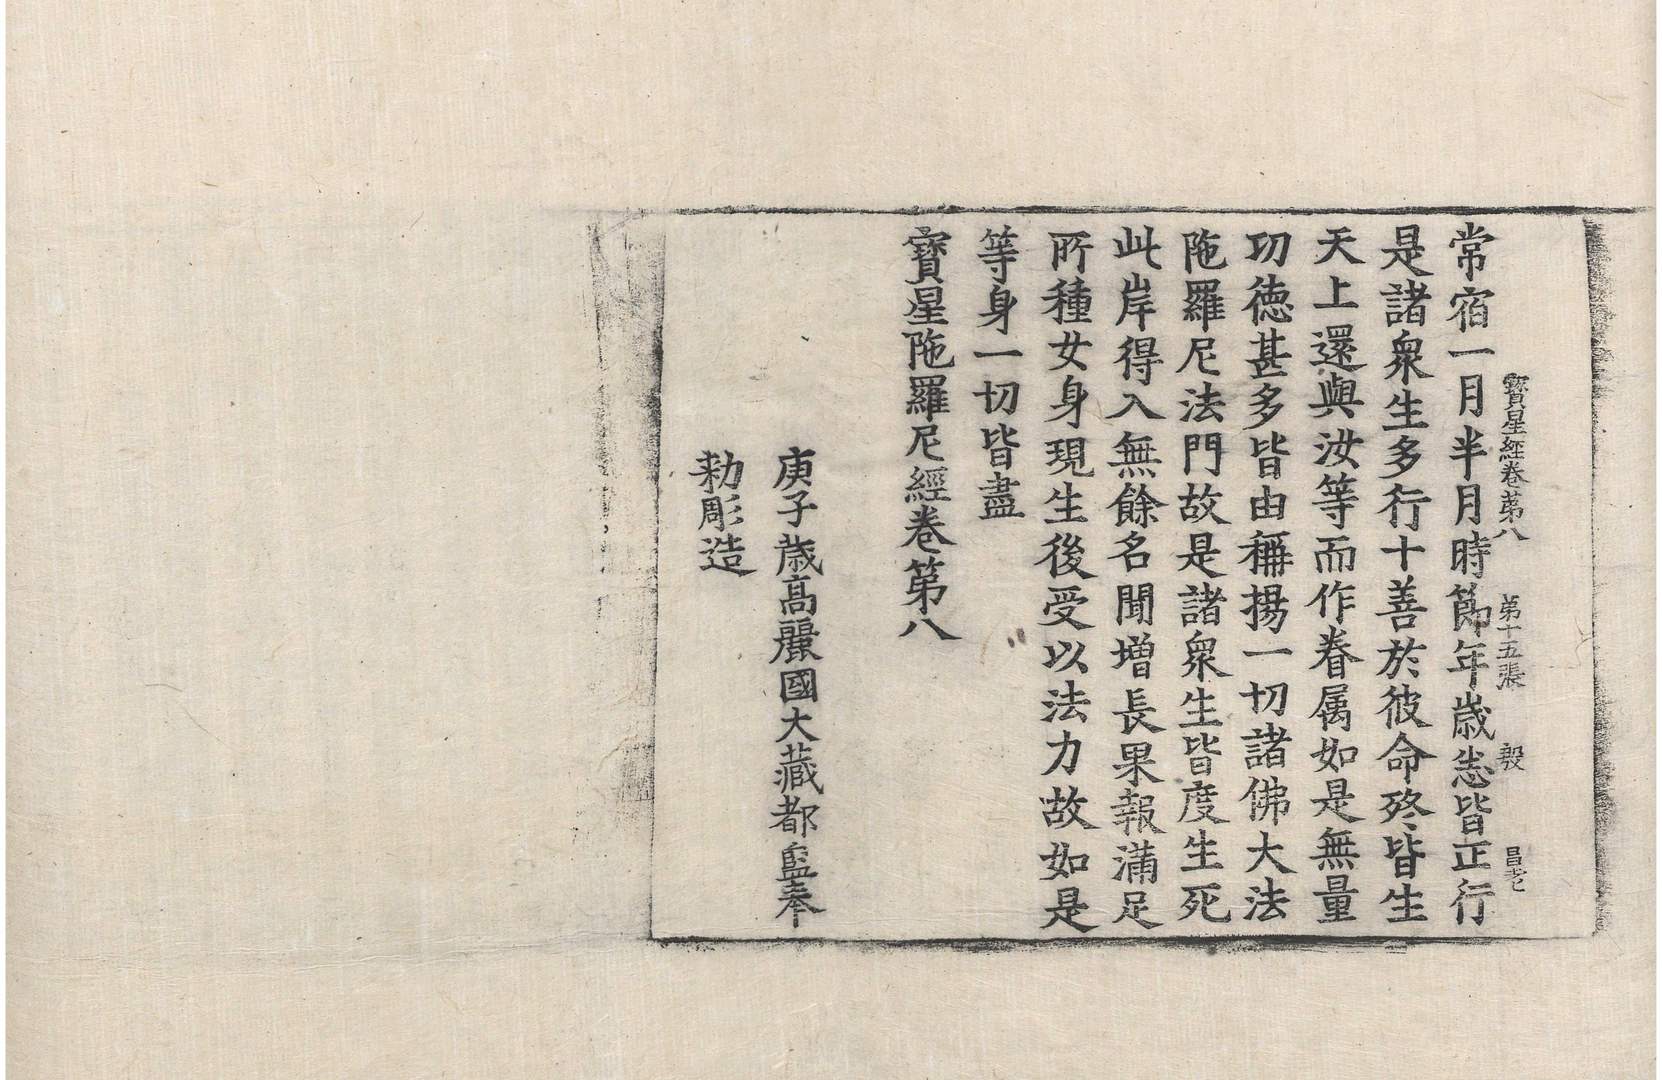 寶星經卷第八 第十五張 殷 昌老
常宿一月半月時節年歲悉皆正行
是諸衆生多行十善於彼命終皆生
天上還與汝等而作眷属如是無量
功德甚多皆由稱揚一切諸佛大法
陁羅尼法門故是諸衆生皆度生死
此岸得入無餘名聞增長果報滿足
所種女身現生後受以法力故如是
等身一切皆盡
寶星陁羅尼經卷第八
庚子歳高麗國大藏都監奉
勑彫造